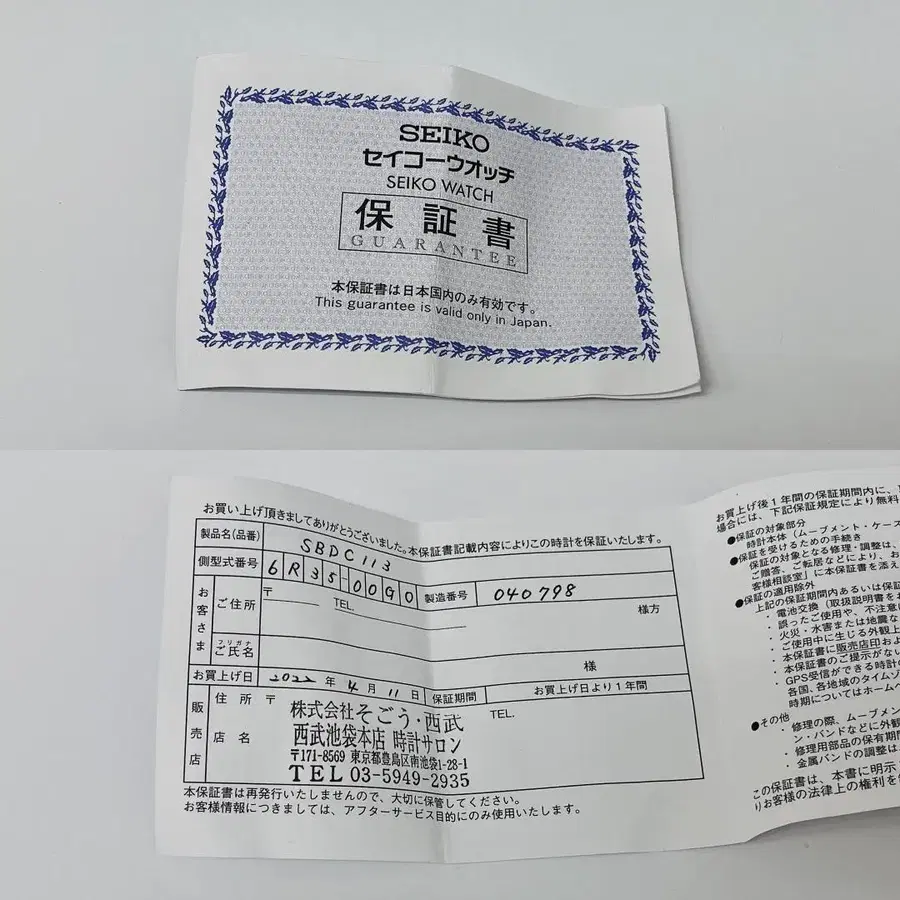 SEIKO
セイコーウオッチ
SEIKO WATCH
保証書
GUARANTEE
本保証書は日本国内のみ有効です。
This guarantee is valid only in Japan.
お買い上げ頂きましてありがとうございました。本保証書記載内容によりこの時計を保証いたします。
製品名(品番) SBDC113
側型式番号 6R35-00G0 製造番号 040798
お客さま ご住所 〒 TEL. 様方
フリガナ
ご氏名 様
お買上げ日 2022年4月11日 保証期間 お買上げ日より1年間
販売店 住所 〒 TEL.
店名
株式会社そごう・西武
西武池袋本店 時計サロン
〒171-8569 東京都豊島区南池袋1-28-1
TEL 03-5949-2935
本保証書は再発行いたしませんので、大切に保管してください。
お客様情報につきましては、アフターサービス目的にのみ使用いたします。
お買上げ後1年間の保証期間内に、
場合には、下記保証規定により無料
●保証の対象部分
時計本体(ムーブメント・ケース
●保証を受けるための手続き
保証の対象となる修理・調整は、
ご贈答、ご転居などにより、お
客様相談室」に本保証書を添え
●保証の適用除外
上記の保証期間内あるいは保証
・電池交換(取扱説明書を
・誤ったご使用や、不注意に
・火災・水害または地震な
・ご使用中に生じる外観上
・本保証書に販売店印およ
・本保証書のご提示がない
・GPS受信ができる時計の
各国、各地域のタイムゾ
時期についてはホームペ
●その他
・修理の際、ムーブメン
ン・バンドなどに外観
・修理用部品の保有期間
・金属バンドの調整は、
この保証書は、本書に明示
りお客様の法律上の権利を